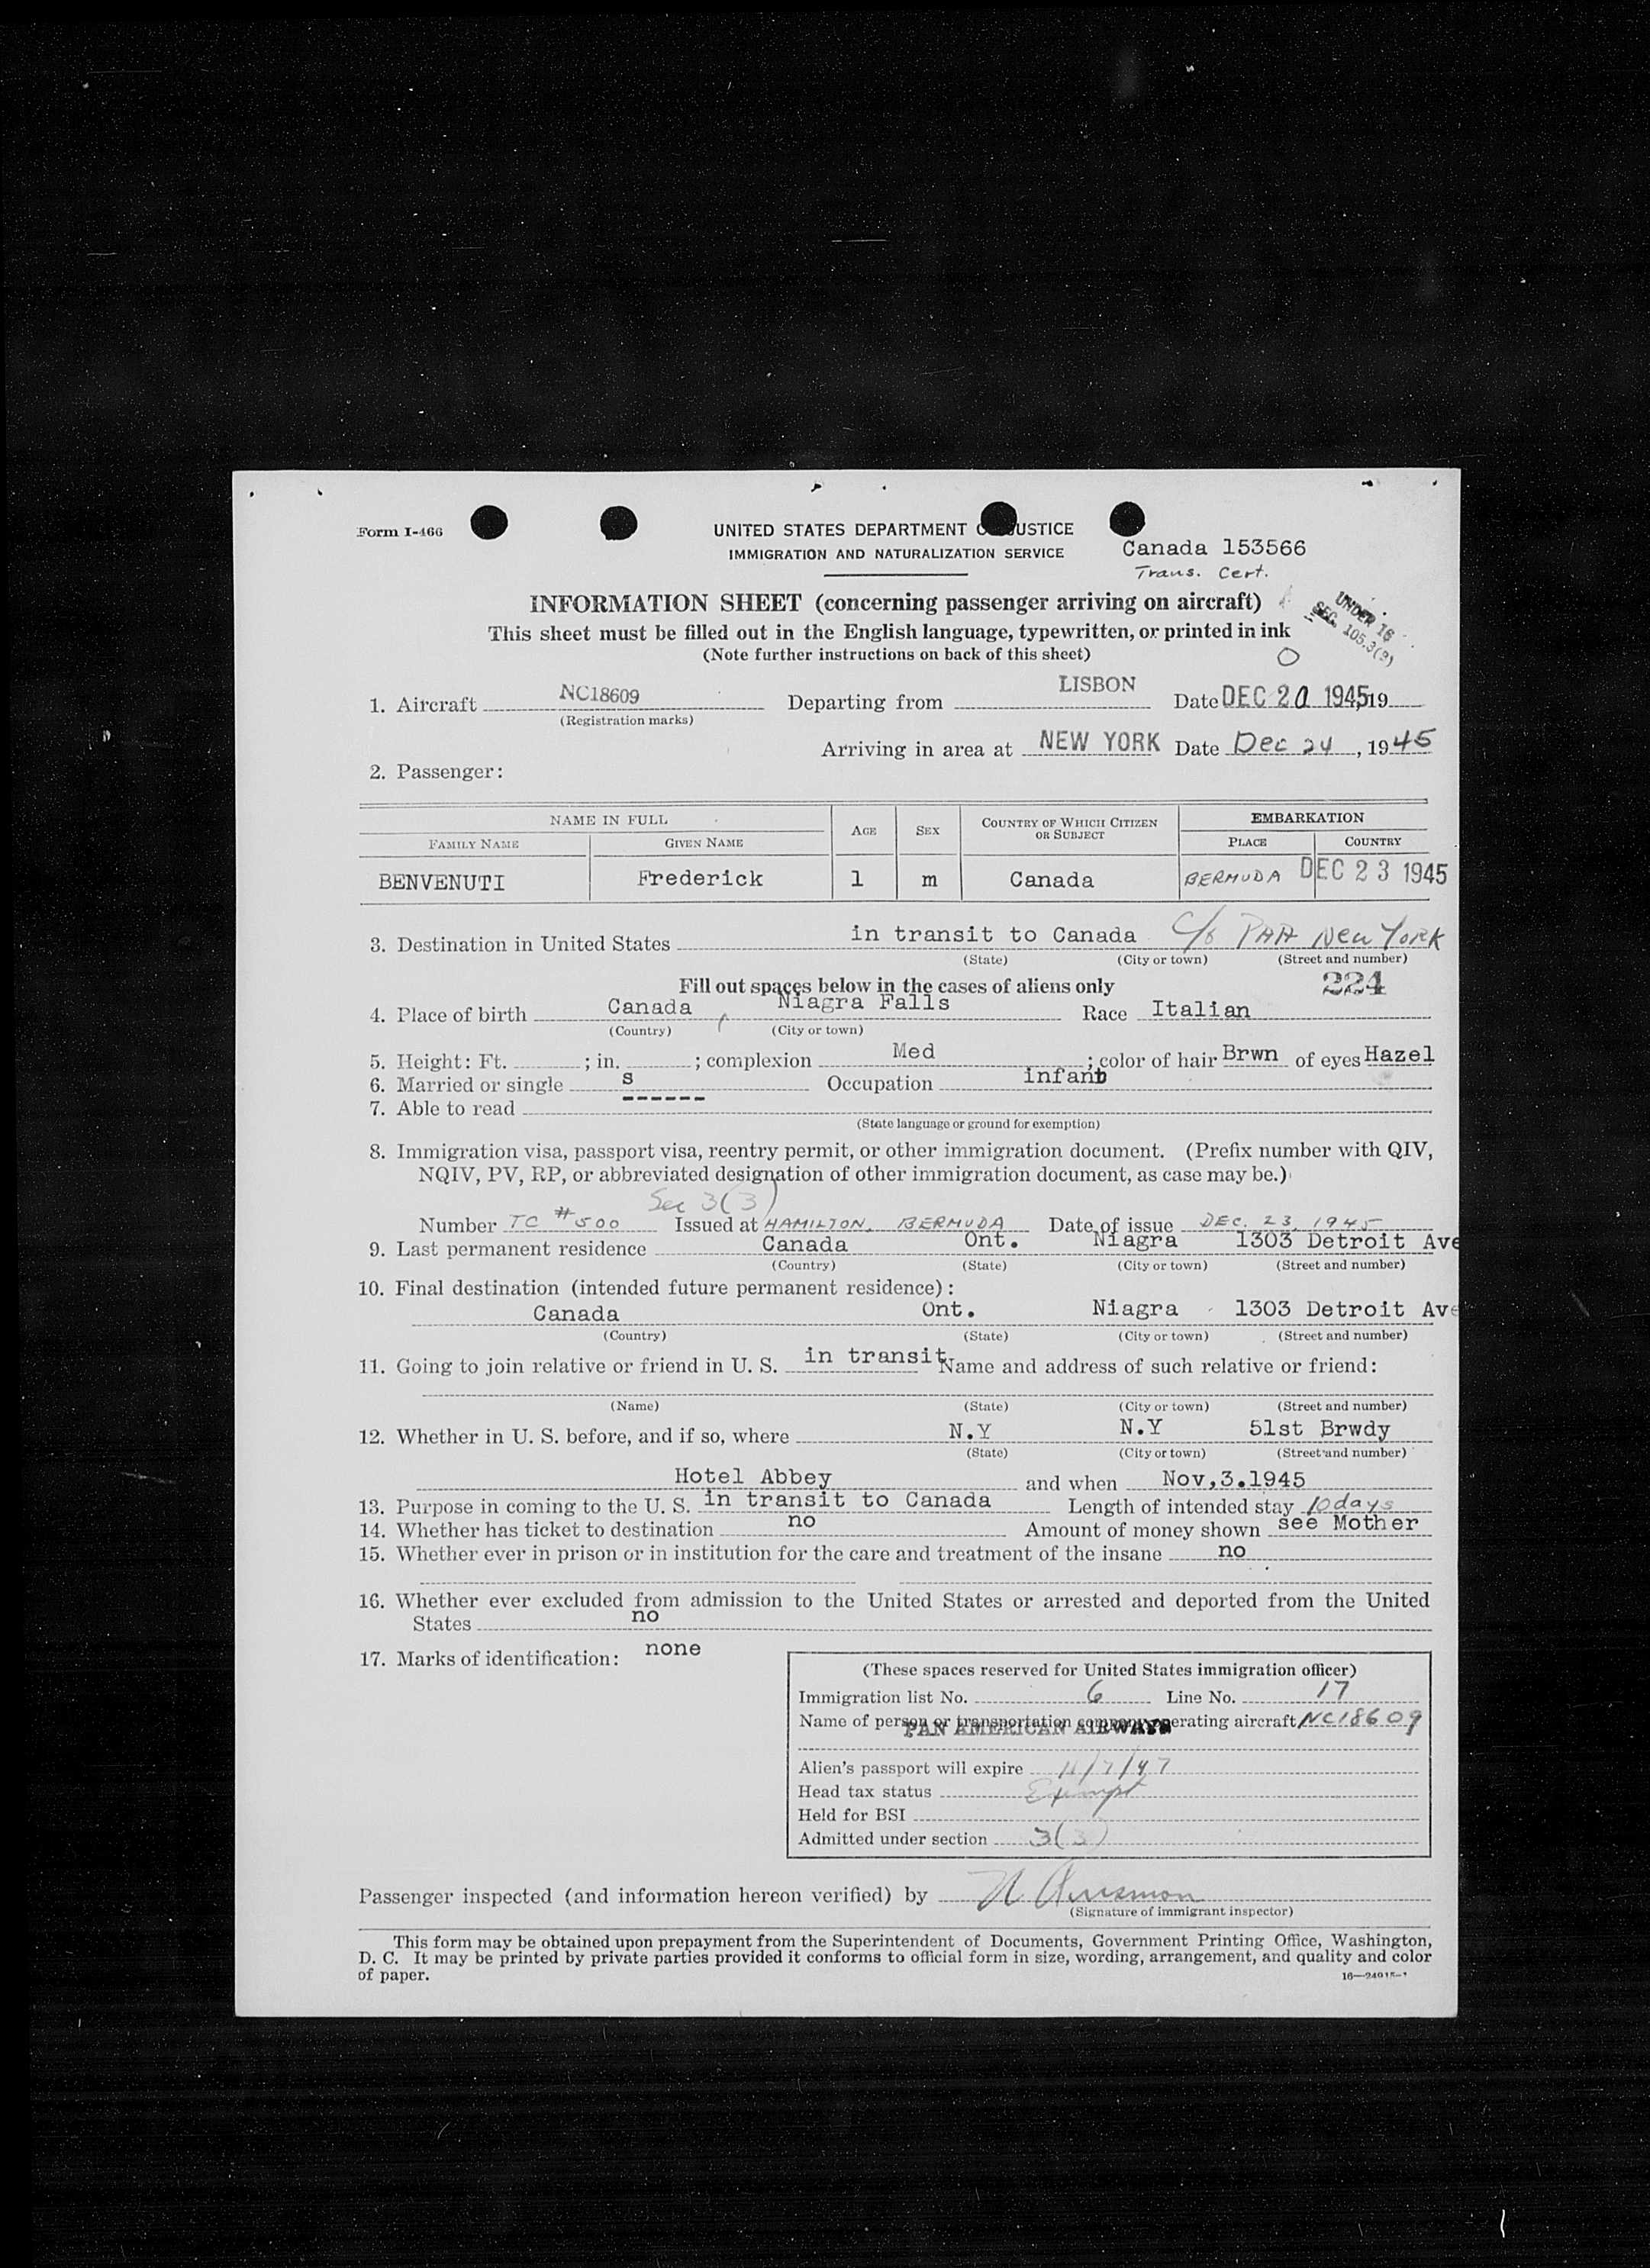 Form I-466
UNITED STATES DEPARTMENT O JUSTICE
IMMIGRATION AND NATURALIZATION SERVICE
Canada 153566
Trans. Cert.
INFORMATION SHEET (concerning passenger arriving on aircraft)
UNDER 16
SEC. 105.3(9)
This sheet must be filled out in the English language, typewritten, or printed in ink
(Note further instructions on back of this sheet)
1. Aircraft NC18609 Departing from LISBON Date DEC 20 1945, 19
(Registration marks)
Arriving in area at NEW YORK Date Dec 24, 1945
2. Passenger:
NAME IN FULL AGE SEX COUNTRY OF WHICH CITIZEN OR SUBJECT EMBARKATION
FAMILY NAME GIVEN NAME PLACE COUNTRY
BENVENUTI Frederick 1 m Canada BERMUDA DEC 23 1945
3. Destination in United States in transit to Canada C/o PAA New York
(State) (City or town) (Street and number)
Fill out spaces below in the cases of aliens only 224
4. Place of birth Canada, Niagra Falls Race Italian
(Country) (City or town)
5. Height: Ft. ; in. ; complexion Med ; color of hair Brwn of eyes Hazel
6. Married or single s Occupation infant
7. Able to read
(State language or ground for exemption)
8. Immigration visa, passport visa, reentry permit, or other immigration document. (Prefix number with QIV,
NQIV, PV, RP, or abbreviated designation of other immigration document, as case may be.)
Sec 3(3)
Number TC #500 Issued at HAMILTON, BERMUDA Date of issue DEC. 23, 1945
9. Last permanent residence Canada Ont. Niagra 1303 Detroit Ave
(Country) (State) (City or town) (Street and number)
10. Final destination (intended future permanent residence):
Canada Ont. Niagra 1303 Detroit Ave
(Country) (State) (City or town) (Street and number)
11. Going to join relative or friend in U. S. in transit Name and address of such relative or friend:
(Name) (State) (City or town) (Street and number)
12. Whether in U. S. before, and if so, where N.Y N.Y 51st Brwdy
(State) (City or town) (Street and number)
Hotel Abbey and when Nov,3.1945
13. Purpose in coming to the U. S. in transit to Canada Length of intended stay 10 days
14. Whether has ticket to destination no Amount of money shown see Mother
15. Whether ever in prison or in institution for the care and treatment of the insane no
16. Whether ever excluded from admission to the United States or arrested and deported from the United
States no
17. Marks of identification: none
(These spaces reserved for United States immigration officer)
Immigration list No. 6 Line No. 17
Name of person or transportation company operating aircraft NC18609
PAN AMERICAN AIRWAYS
Alien's passport will expire 11/7/47
Head tax status Exempt
Held for BSI
Admitted under section 3(3)
Passenger inspected (and information hereon verified) by
(Signature of immigrant inspector)
This form may be obtained upon prepayment from the Superintendent of Documents, Government Printing Office, Washington,
D. C. It may be printed by private parties provided it conforms to official form in size, wording, arrangement, and quality and color
of paper.